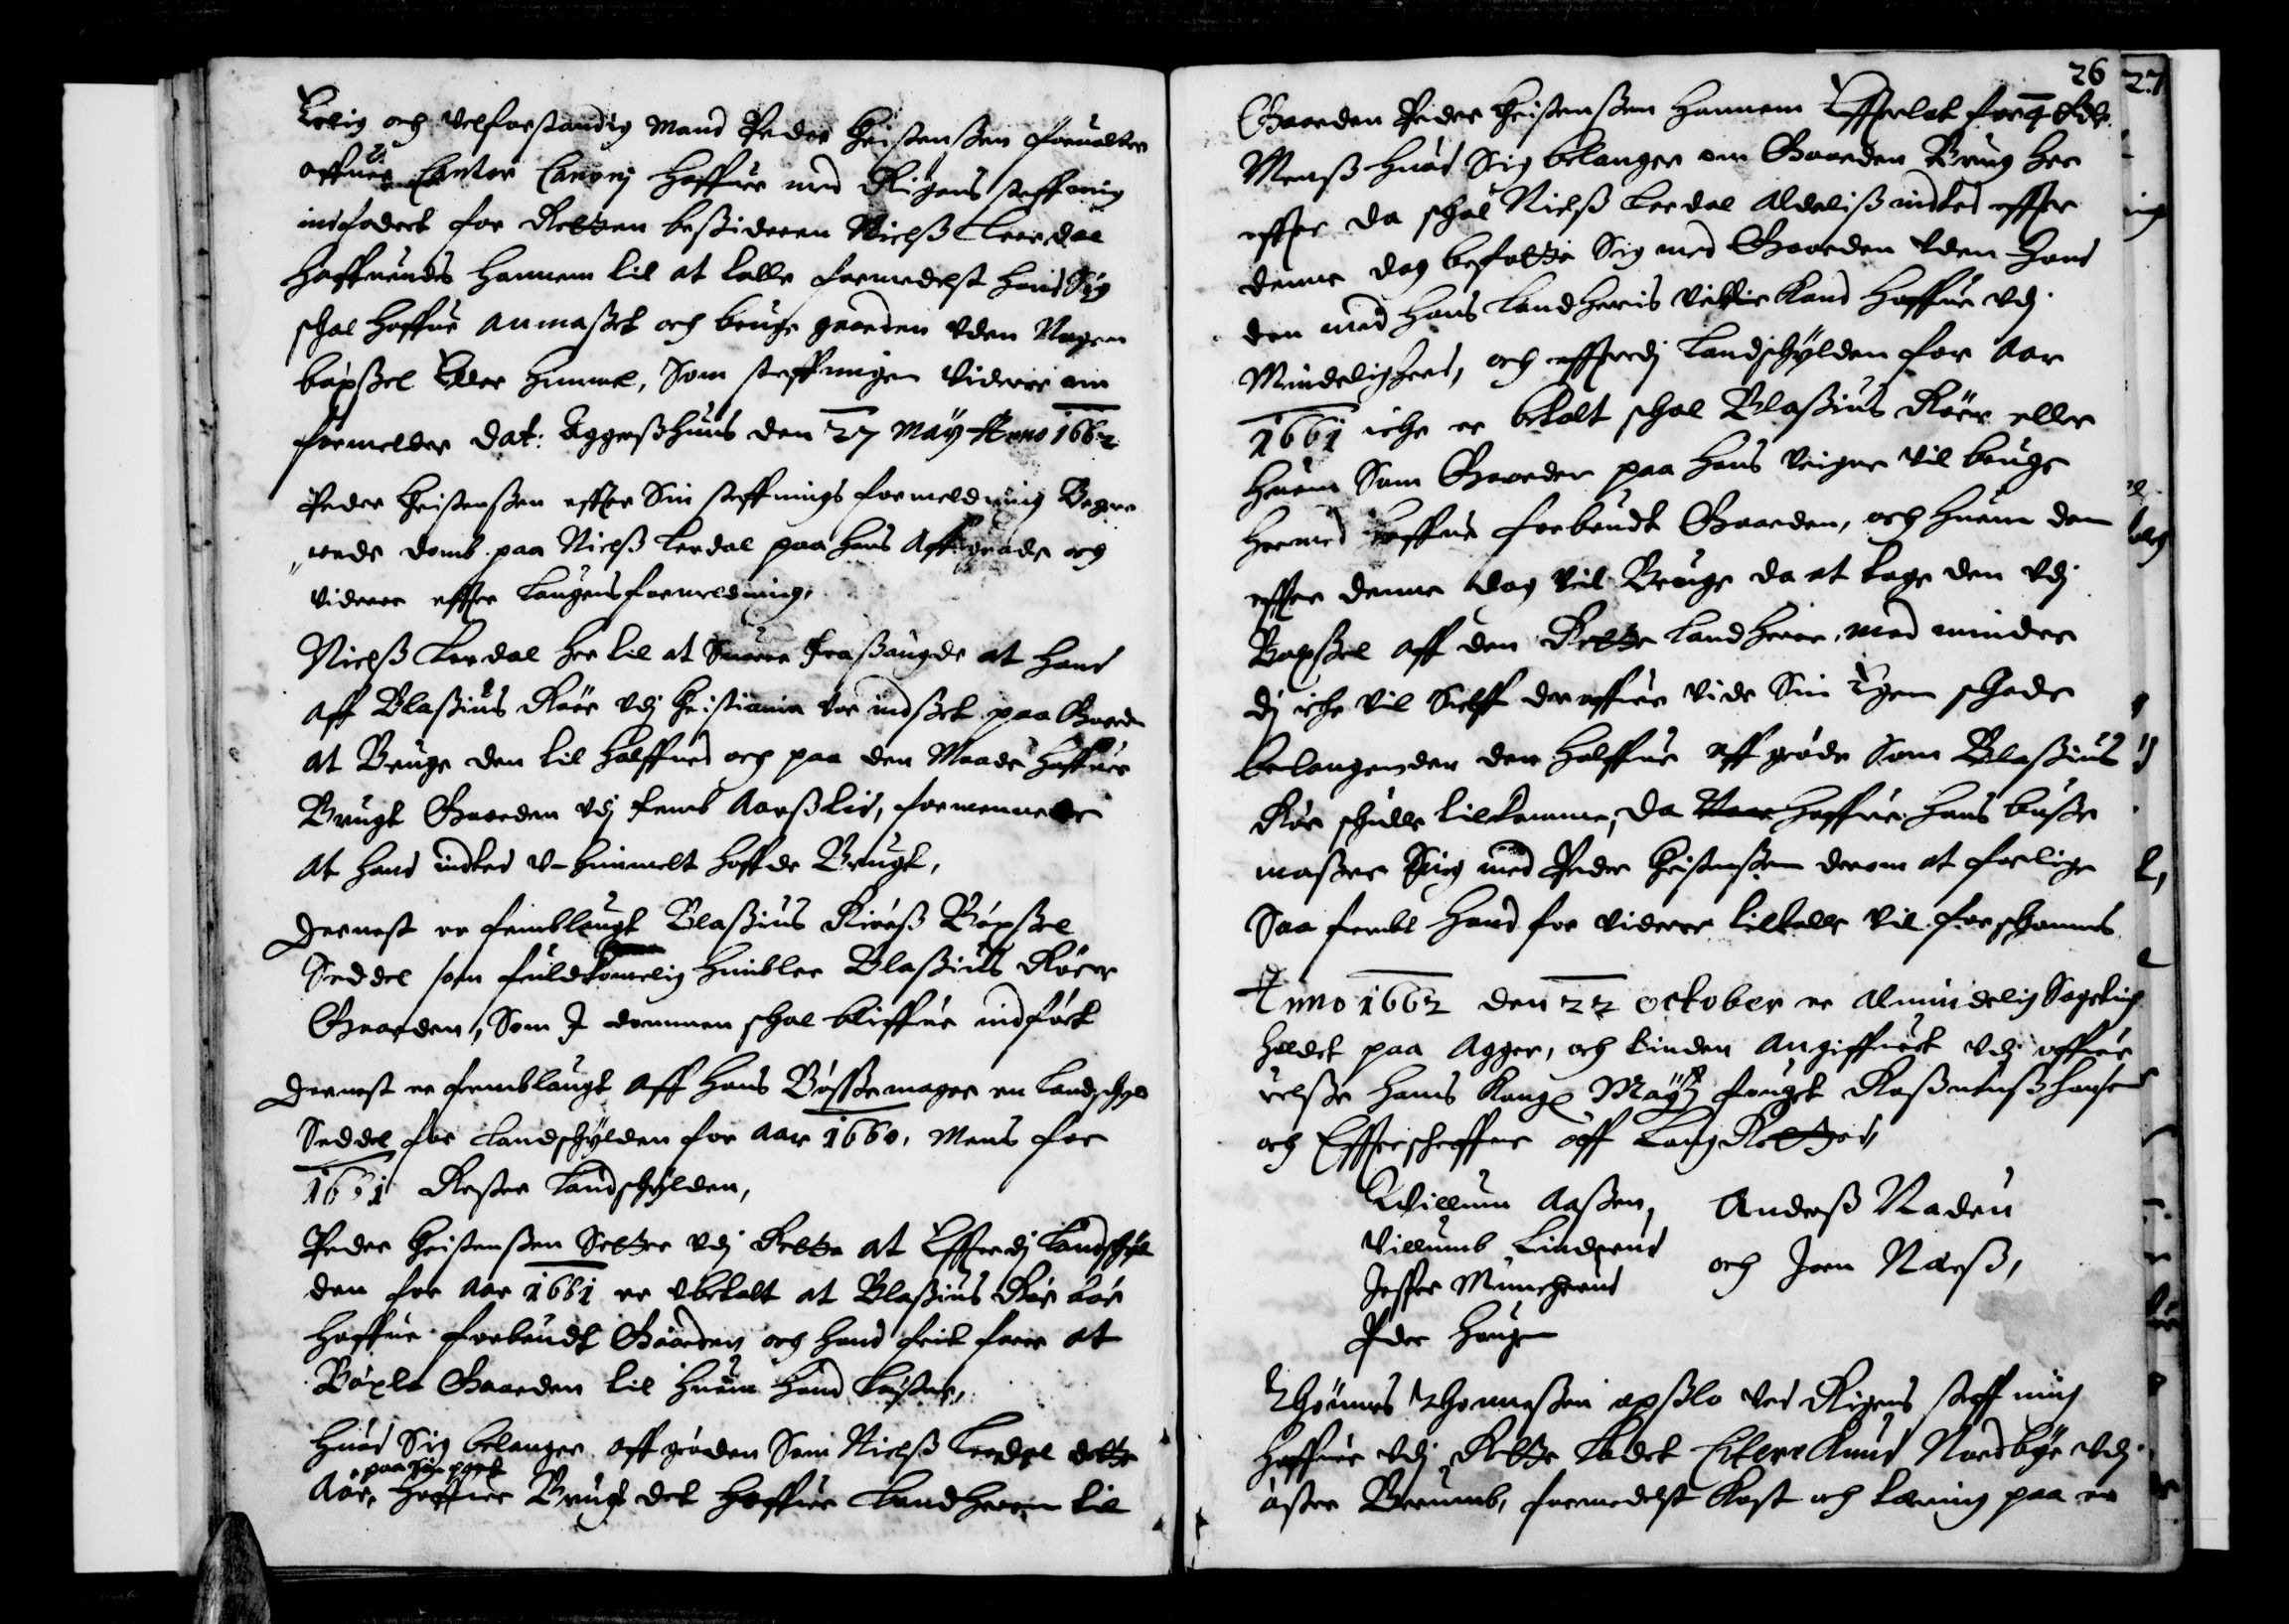 Erlig och Velforstandig Mand Peder Christensßen foruallter
offuer Cantor Canonj Haffuer med Rigens steffning
indfodert for Retten besßideren Nielß Leerdal
Haffuendis Hannem til at talle formedelst Hand Sig
schal Haffue anmasßet och bruge gaarden Vden Nogen
bøxsßel Eller Himmel, Som steffningen Videre om
formelder dat: Aggersßhuus den 27 Maÿ Anno 1662
Peder Christensßen effter Sin steffnings formeldning Begie-
rende domb paa Nielß Lerdal paa hans Affgrøde och
Videre effter Laugens formeldning,
Nielß Lerdal Her til at Suare frasßaugde at Hand
aff Blasßius Røer Vdj Christiania Vor indsßet paa Gaarden
at Bruge den til Halffued och paa den Maade Haffuer
Brugt Gaarden Vdj femb Aarsß tid, formennede
at Hand indted V-himmelt Haffde Brugt,
Dernest er frembLaugt Blasßius Røersß Bøxsßel
Seddel som fuldkomelig Himbler Blasßius Røer
Gaarden, Som I dommen schal bliffue indført
Dernest er fremblaugt aff Hans Bøsßemager en Landschyld
Seddel for Landschylden for Aar 1660, Mens for
1661 Rester Landschylden,
Peder Christensßen Setter Vdj Rette at Effterdj Landschyl
den for Aar 1661 er Vbetalt at Blasßius Røer bør
Haffue forbrudt Gaarden och Hand frit faar at
Bøxle Gaarden til Huem Hand Løster,
Huad Sig belanger affgrøden Som Nielß Leerdal dette
paa sin part
Aar, Haffuer Brugt det Haffuer Landherren til
26
Gaarden Peder Christensßen Hannem Effterlat for 4 Rdr.
Mensß Huad Sig belanger om Gaarden Brug Her
effter da schal Nielß Lerdal aldelisß indted effter
denne dag befatte Sig med Gaarden Vden Hand
den med Hans Landherris Villie Kand Haffue Vdj
Mindelighed, och effterdj Landschylden for Aar
1661 iche er betalt schal Blasßius Røer eller
Huem Som Gaarden paa Hans Veigne Vil bruge
Hermed Haffue forbrudt Gaarden, och Huem den
effter denne dag Vil Bruge da at tage den Vdj
Bøxsßel aff den Rette Landherre, med mindre
dj iche Vil Sielff der offuer Vide Sin Egen schade
belangender den Halffue affgrøde Som Blasßius
Røer schulle tilkomme, da Haffuer Hans bøsße
masßer Sig med Peder Christensßen derom at forlige
Saa frembt Hand for Videre tiltalle Vil forschonnes
Anno 1662 den 22 october er almindelig Sageting
Holdet paa Agger, och tinden angiffuet Vdj offuer
Velsße Hans Kongl Maÿtz fougt Rasßmusß Hansen
och Effterschreffne aff Laug Rettet,
Willum Aasßen,
Villumb Linderud
Jesper Muncherud
Peder Haugen
Andersß Raden
och Joen Næsß,
Thommes Thommesßen opsßlo Ved Rigens steffning
Haffuer Vdj Rette Ladet Citere Knud Nordbye Vdj
øster Berumb, formedelst Kost och tæring paa en